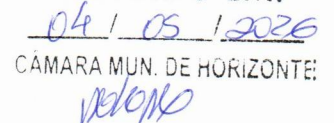 04 / 05 / 2026
CÂMARA MUN. DE HORIZONTE